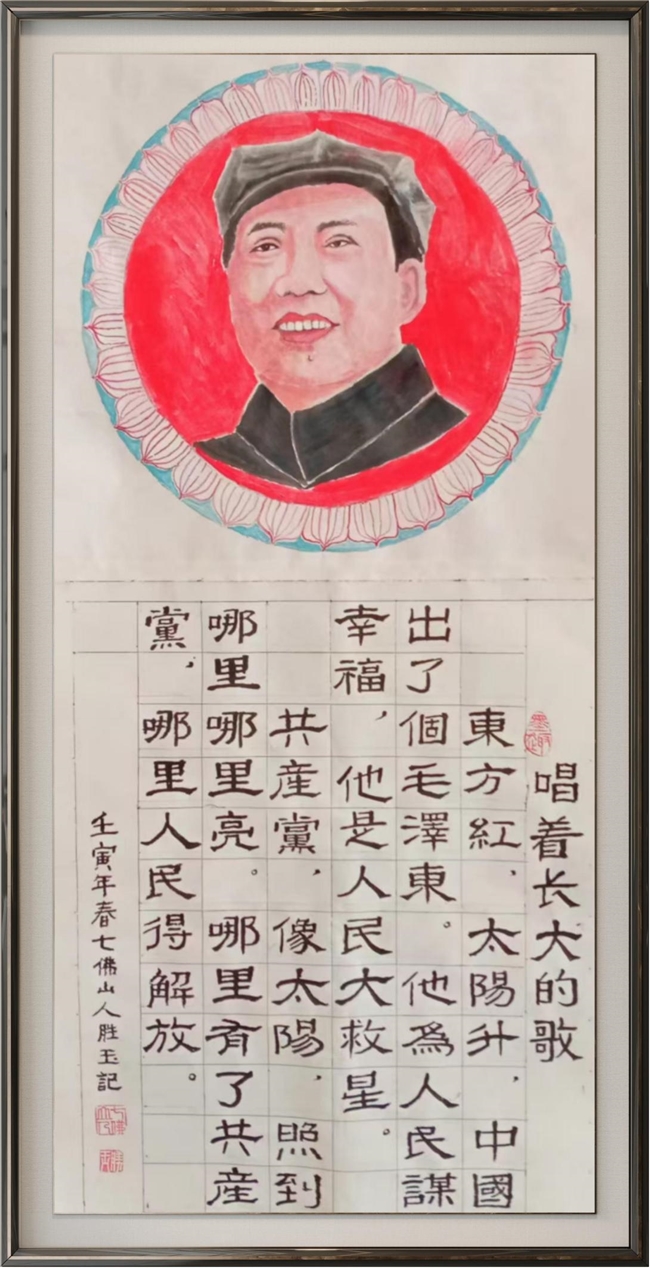 唱着长大的歌
東方紅，太陽升，中國
出了個毛澤東。他爲人民謀
幸福，他是人民大救星。
共産黨，像太陽，照到
哪里哪里亮。哪里有了共産
黨，哪里人民得解放。
壬寅年春七佛山人胜玉記